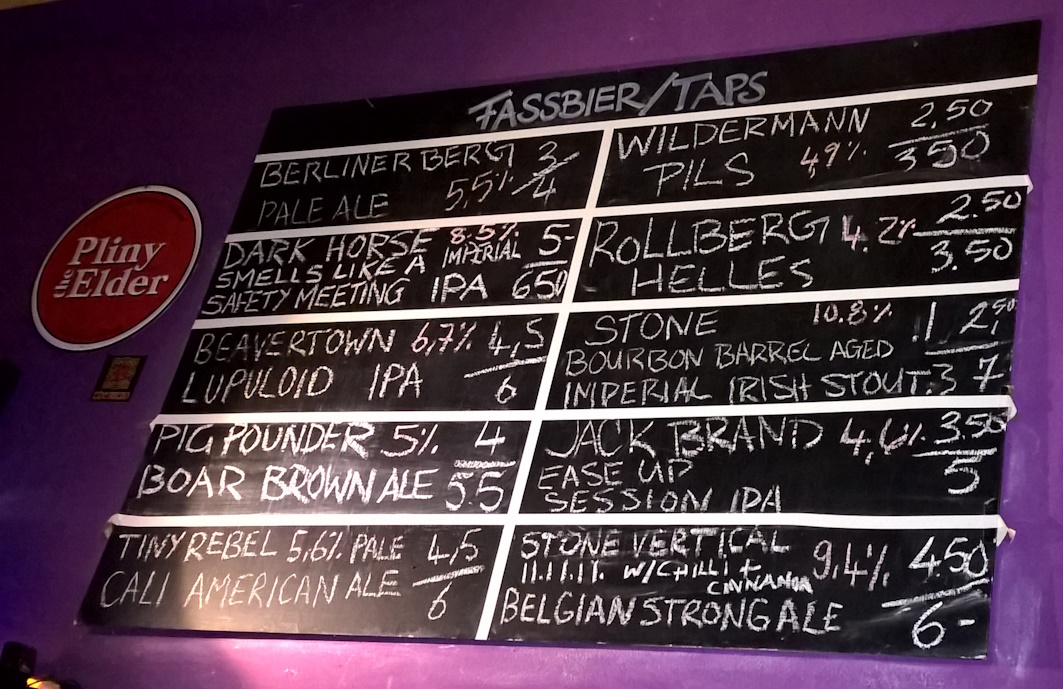 FASSBIER/TAPS
BERLINER BERG 3
PALE ALE 5,5% 4
DARK HORSE 8.5% IMPERIAL 5-
SMELLS LIKE A
SAFETY MEETING IPA 650
BEAVERTOWN 6,7% 4,5
LUPULOID IPA 6
PIG POUNDER 5% 4
BOAR BROWN ALE 5.5
TINY REBEL 5,6% PALE 4,5
CALI AMERICAN ALE 6
WILDERMANN 2,50
PILS 4,9% 350
ROLLBERG 4.2% 2.50
HELLES 3.50
STONE 10.8% .1 2,50
BOURBON BARREL AGED
IMPERIAL IRISH STOUT .3 7
JACK BRAND 4,6% 3.50
EASE UP 5
SESSION IPA
STONE VERTICAL 9,4% 4.50
11.11.11. W/CHILLI +
CINNAMON
BELGIAN STRONG ALE 6-
Pliny
the Elder